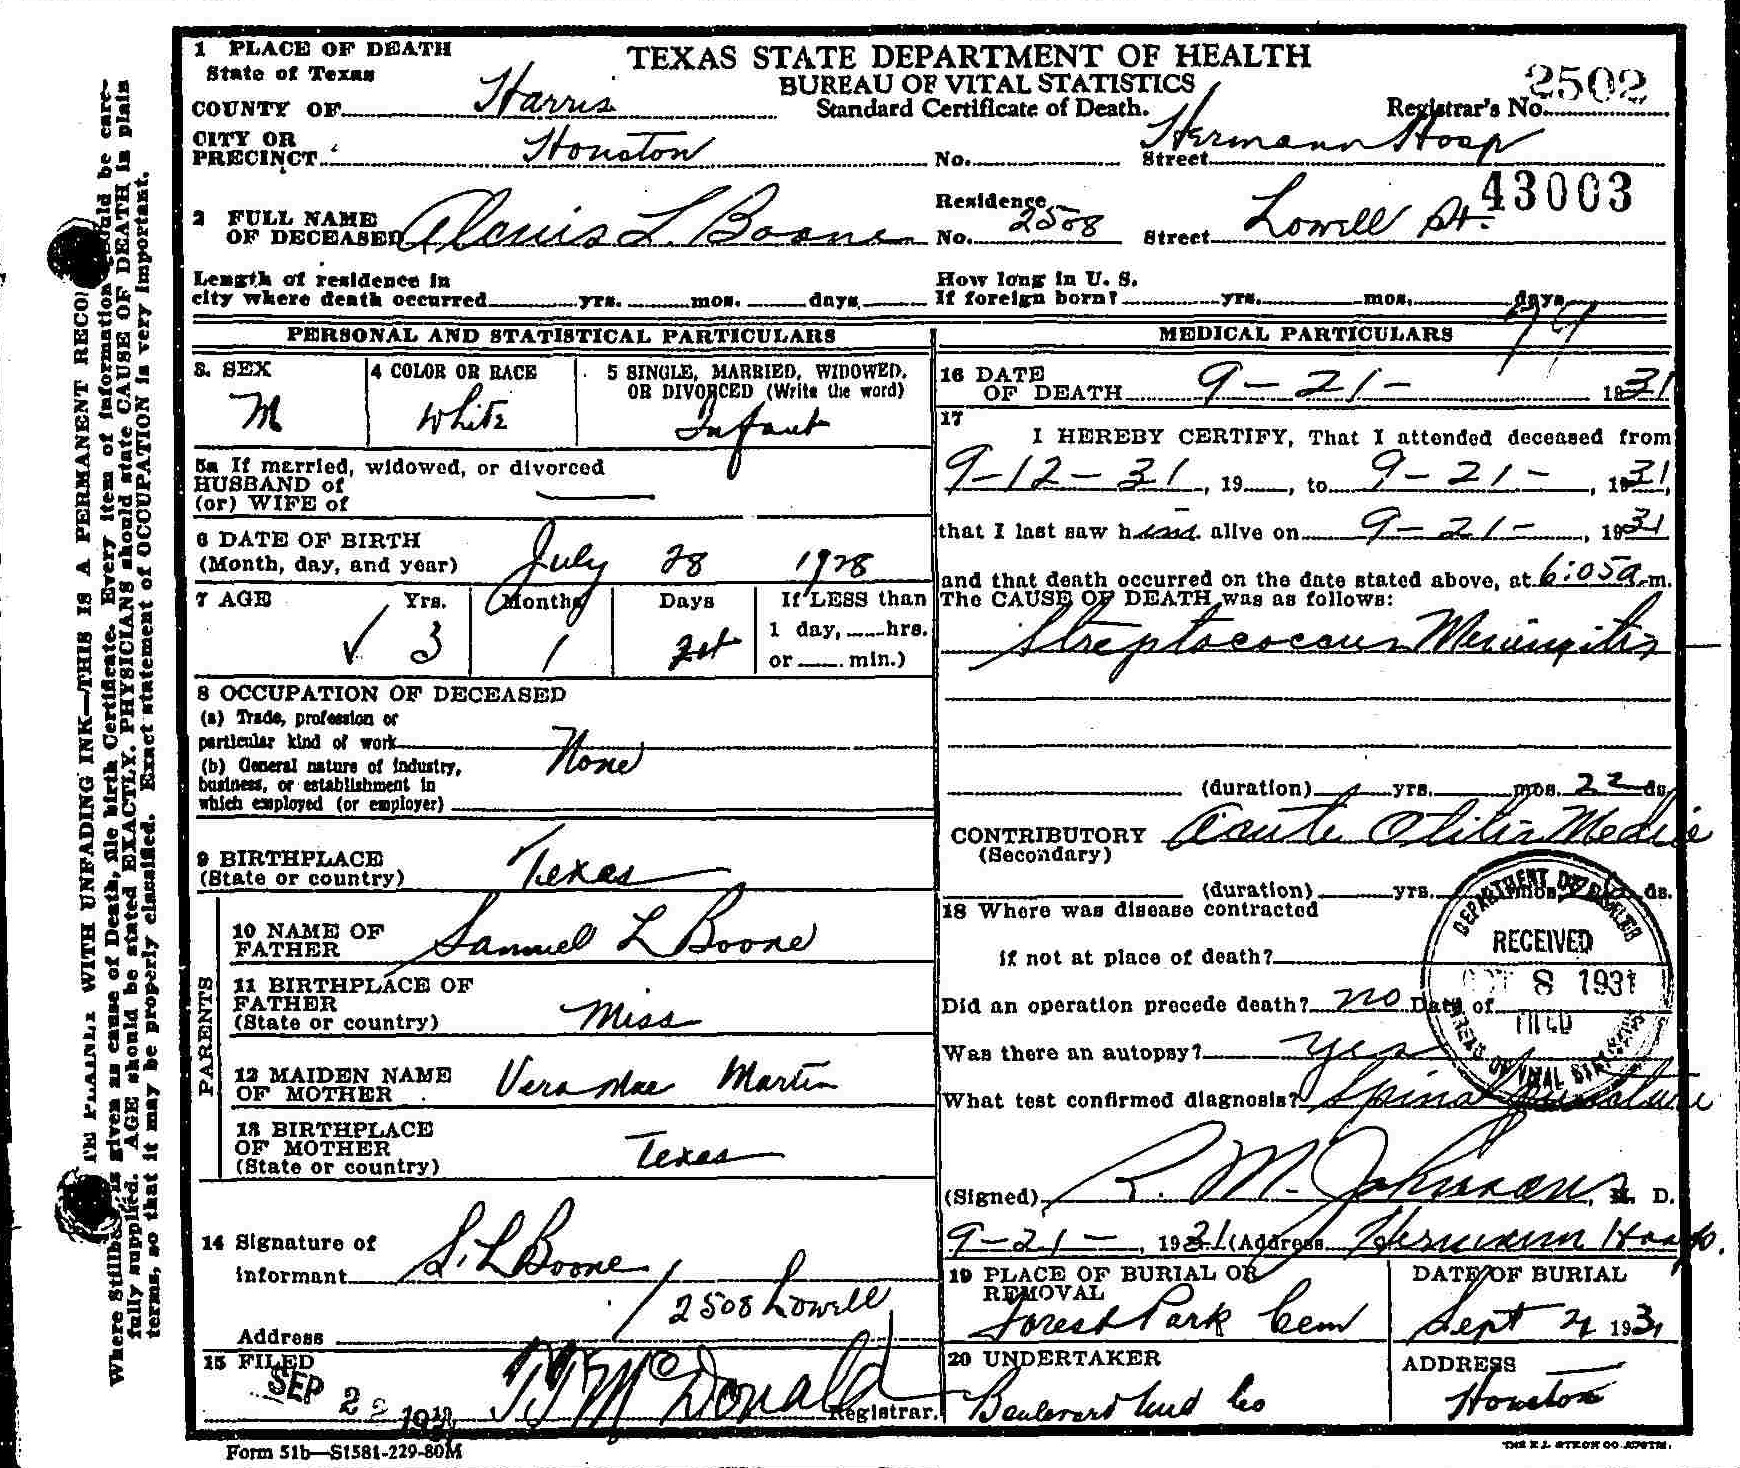 1 PLACE OF DEATH
State of Texas
COUNTY OF Harris
CITY OR PRECINCT Houston
TEXAS STATE DEPARTMENT OF HEALTH
BUREAU OF VITAL STATISTICS
Standard Certificate of Death.
Registrar's No. 2502
No. Street Hermann Hosp
43003
2 FULL NAME
OF DECEASED L. Boone
Residence
No. 2508 Street Lowell St.
Length of residence in
city where death occurred yrs. mos. days.
How long in U. S.
If foreign born? yrs. mos. days
PERSONAL AND STATISTICAL PARTICULARS
3. SEX
M
4 COLOR OR RACE
White
5 SINGLE, MARRIED, WIDOWED,
OR DIVORCED (Write the word)
Infant
5a If married, widowed, or divorced
HUSBAND of
(or) WIFE of
6 DATE OF BIRTH
(Month, day, and year) July 28 1928
7 AGE Yrs. Months Days If LESS than
1 day, hrs.
or min.)
3 1
8 OCCUPATION OF DECEASED
(a) Trade, profession or
particular kind of work
None
(b) General nature of industry,
business, or establishment in
which employed (or employer)
9 BIRTHPLACE
(State or country) Texas
PARENTS
10 NAME OF
FATHER Samuel L Boone
11 BIRTHPLACE OF
FATHER
(State or country) Miss
12 MAIDEN NAME
OF MOTHER Vera Mae Martin
13 BIRTHPLACE
OF MOTHER
(State or country) Texas
14 Signature of
Informant S. L Boone
Address 2508 Lowell
15 FILED
SEP 22 19 T J McDonald Registrar.
MEDICAL PARTICULARS
16 DATE
OF DEATH 9-21- 1931
17
I HEREBY CERTIFY, That I attended deceased from
9-12-31, 19 , to 9-21-, 1931,
that I last saw him alive on 9-21-, 1931
and that death occurred on the date stated above, at 6:05a m.
The CAUSE OF DEATH was as follows:
Streptococcus Meningitis
(duration) yrs. mos. 22 ds.
CONTRIBUTORY Acute Otitis Media
(Secondary)
(duration) yrs. mos. ds.
18 Where was disease contracted
if not at place of death?
Did an operation precede death? no Date of
Was there an autopsy? yes
What test confirmed diagnosis? Spinal puncture
RECEIVED
OCT 8 1931
FILED
BUREAU OF VITAL STATISTICS
(Signed) R. M. Johnson, M. D.
9-21-, 1931 (Address Hermann Hosp.
19 PLACE OF BURIAL OR
REMOVAL
Forest Park Cem
DATE OF BURIAL
Sept 21 1931
20 UNDERTAKER
Boulevard Und Co
ADDRESS
Houston
Form 51b—S1581-229-80M
WITH UNFADING INK—THIS IS A PERMANENT
is given as cause of Death, file birth Certificate. Every item of information should be care-
fully supplied. AGE should be stated EXACTLY. PHYSICIANS should state CAUSE OF DEATH in plain
terms, so that it may be properly classified. Exact statement of OCCUPATION is very important.